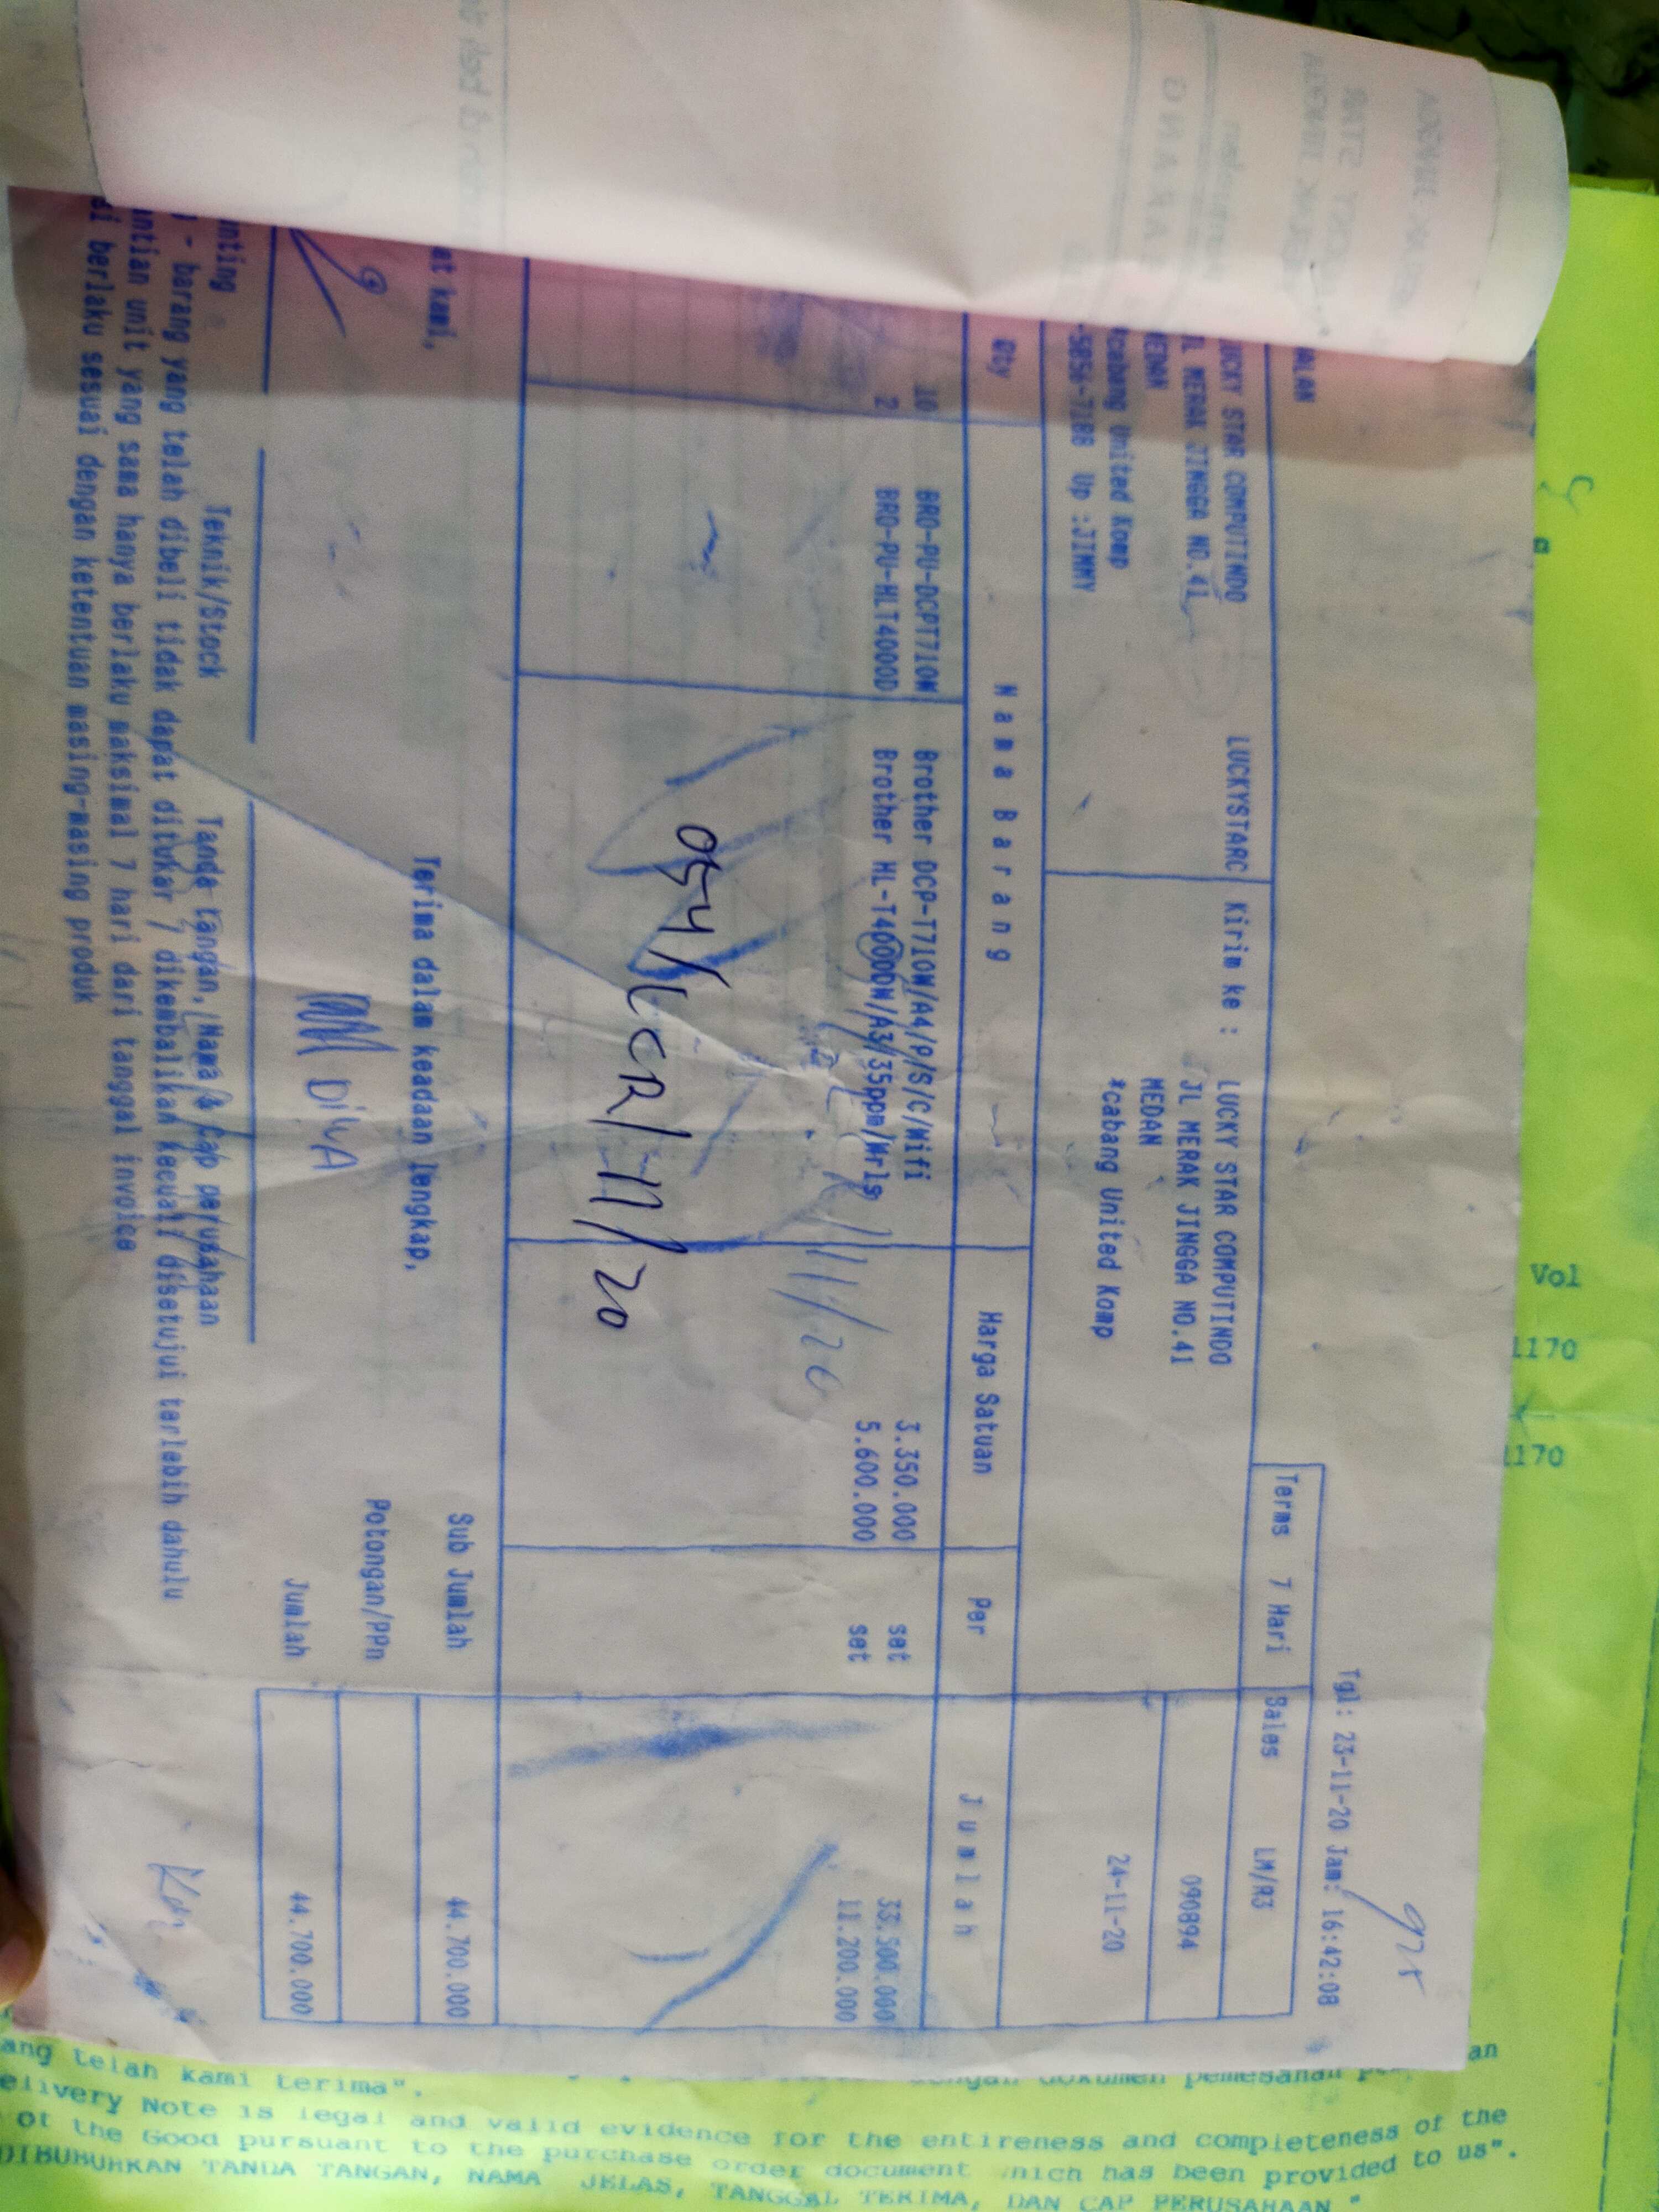 925
Tgl: 23-11-20 Jam: 16:42:08
JALAN
Terms 7 Hari Sales LM/R3
LUCKY STAR COMPUTINDO LUCKYSTARC Kirim ke : LUCKY STAR COMPUTINDO
JL MERAK JINGGA NO.41 JL MERAK JINGGA NO.41 090894
MEDAN MEDAN
*Cabang United Komp *Cabang United Komp 24-11-20
-5050-7188 Up :JIMMY
Qty Nama Barang Harga Satuan Per Jumlah
10 BRO-PU-DCPT710W Brother DCP-T710W/A4/P/S/C/Wifi 3.350.000 set 33.500.000
2 BRO-PU-HLT4000D Brother HL-T4000DW/A3/35ppm/Wrls 5.600.000 set 11.200.000
054/LCR/11/20
at kami, Terima dalam keadaan lengkap, Sub Jumlah 44.700.000
Potongan/PPn
DiwA
Jumlah 44.700.000
unting Teknik/Stock Tanda tangan, Nama & Cap perusahaan
- barang yang telah dibeli tidak dapat ditukar / dikembalikan kecuali disetujui terlebih dahulu
antian unit yang sama hanya berlaku maksimal 7 hari dari tanggal invoice
si berlaku sesuai dengan ketentuan masing-masing produk
Vol
1170
1170
ang telah kami terima".
elivery Note is legal and valid evidence for the entireness and completeness of the
of the Good pursuant to the purchase order document which has been provided to us".
DIBUBUHKAN TANDA TANGAN, NAMA JELAS, TANGGAL TERIMA, DAN CAP PERUSAHAAN "